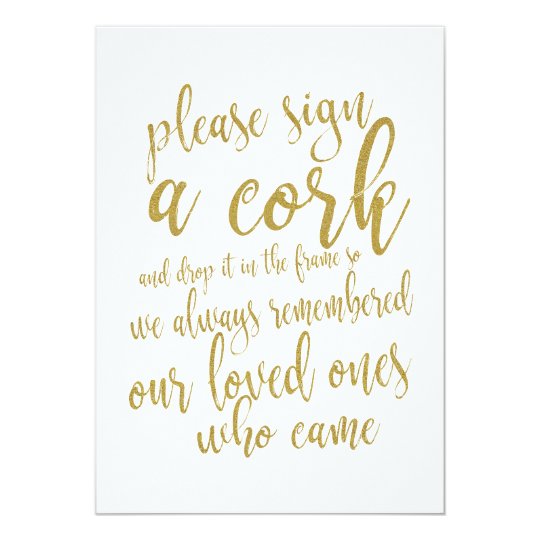 please sign
a cork
and drop it in the frame so
we always remembered
our loved ones
who came